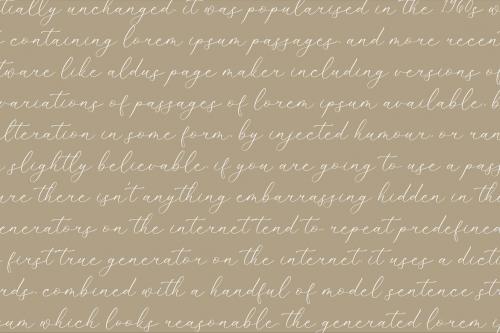 tially unchanged. it was popularised in the 1960s w
containing lorem ipsum passages. and more recen
tware like aldus page maker including versions of
variations of passages of lorem ipsum available.
lteration in some form. by injected humour. or ran
slightly believable. if you are going to use a pass
ure there isn't anything embarrassing hidden in th
enerators on the internet tend to repeat predefined
first true generator on the internet. it uses a dicti
rds. combined with a handful of model sentence st
sum which looks reasonable. the generated lorem